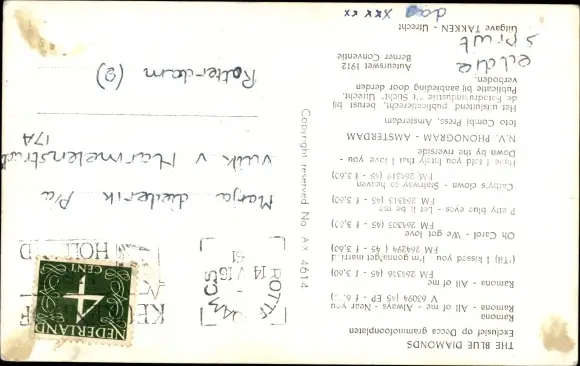 THE BLUE DIAMONDS
Exclusief op Decca grammofoonplaten
Ramona
Ramona - All of me - Always - Near you
V 63094 (45 - EP - f 6,-)
Ramona - All of me
FM 264236 (45 - f 3,60)
('Til) I kissed you - I'm gonna get married
FM 264294 (45 - f 3,60)
Oh Carol - We got love
FM 264303 (45 - f 3,60)
Pretty blue eyes - Let it be me
FM 264313 (45 - f 3,60)
Cathy's clown - Stairway to heaven
FM 264319 (45 - f 3,60)
Have I told you lately that I love you -
Down by the riverside
N.V. PHONOGRAM - AMSTERDAM
foto Combi Press, Amsterdam
Het uitsluitend publicatierecht, berust bij
de Fotoindustrie "'t Sticht", Utrecht.
Publicatie bij aanbieding door derden
verboden.
Auteurswet 1912
Berner Conventie
Uitgave TAKKEN - Utrecht
eddie
sprut
dag xxx xx
Copyright reserved No AX 4614
ROTT
14 V 16
61
HOLL
NEDERLAND
4
CENT
Marja diederik P/a
v Harmelenstraat
17A
Rotterdam (2)